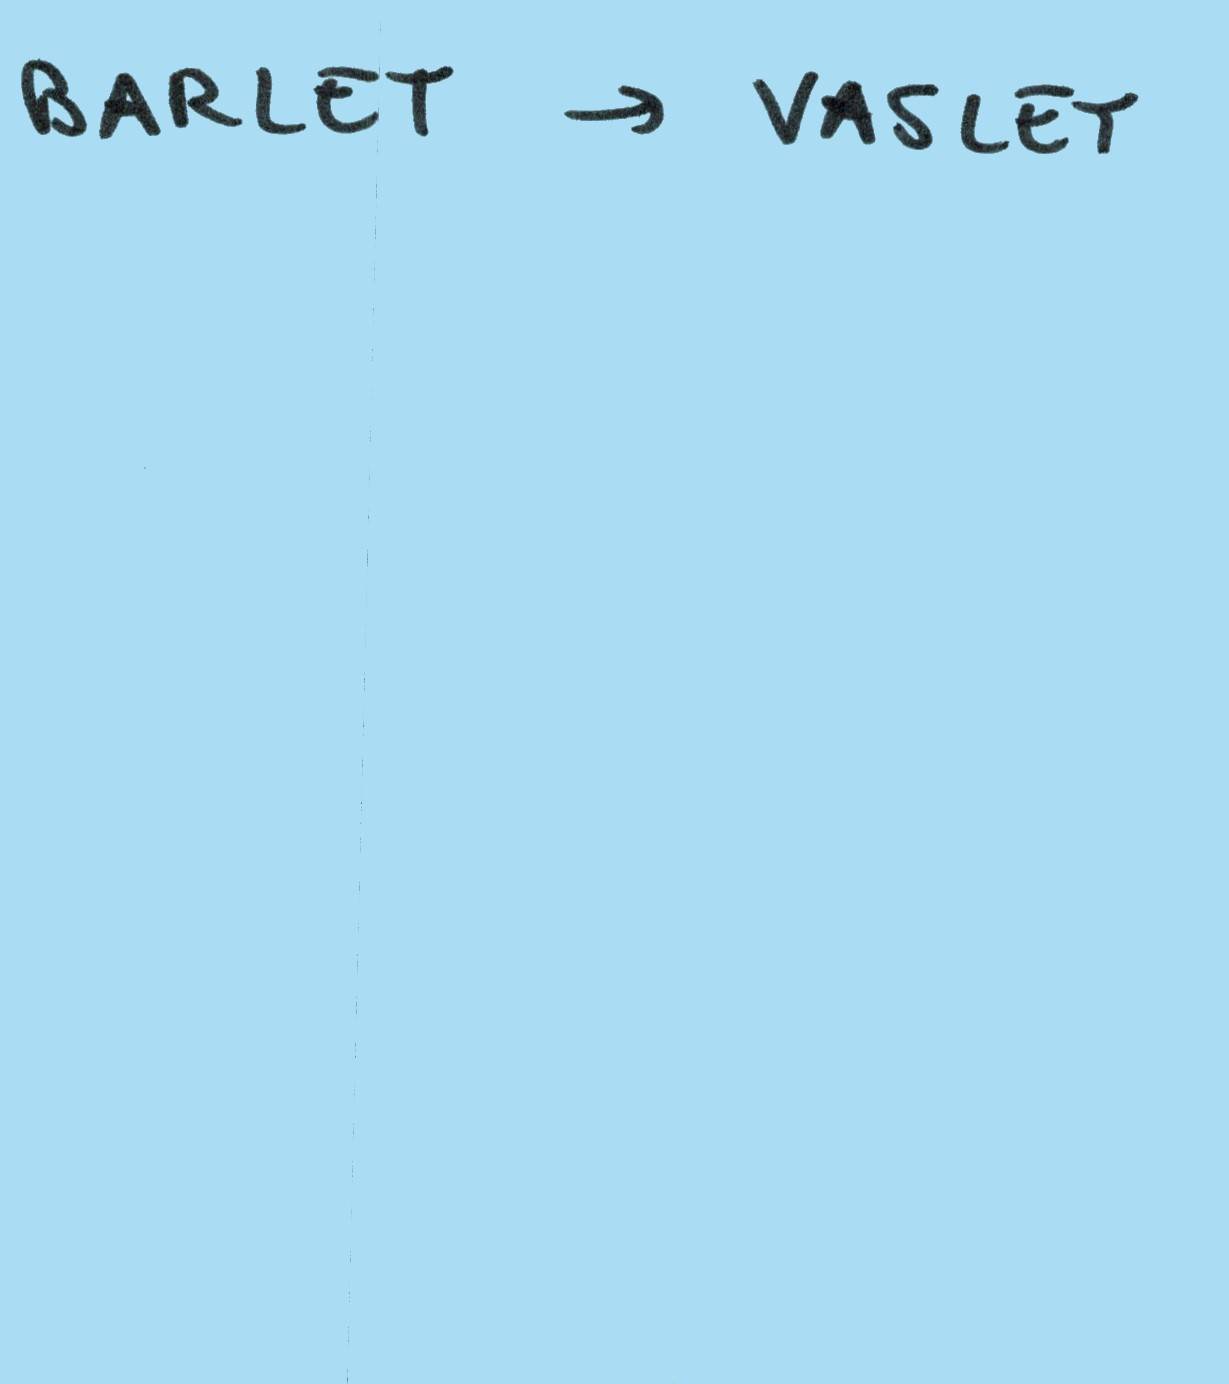 BARLET → VASLET